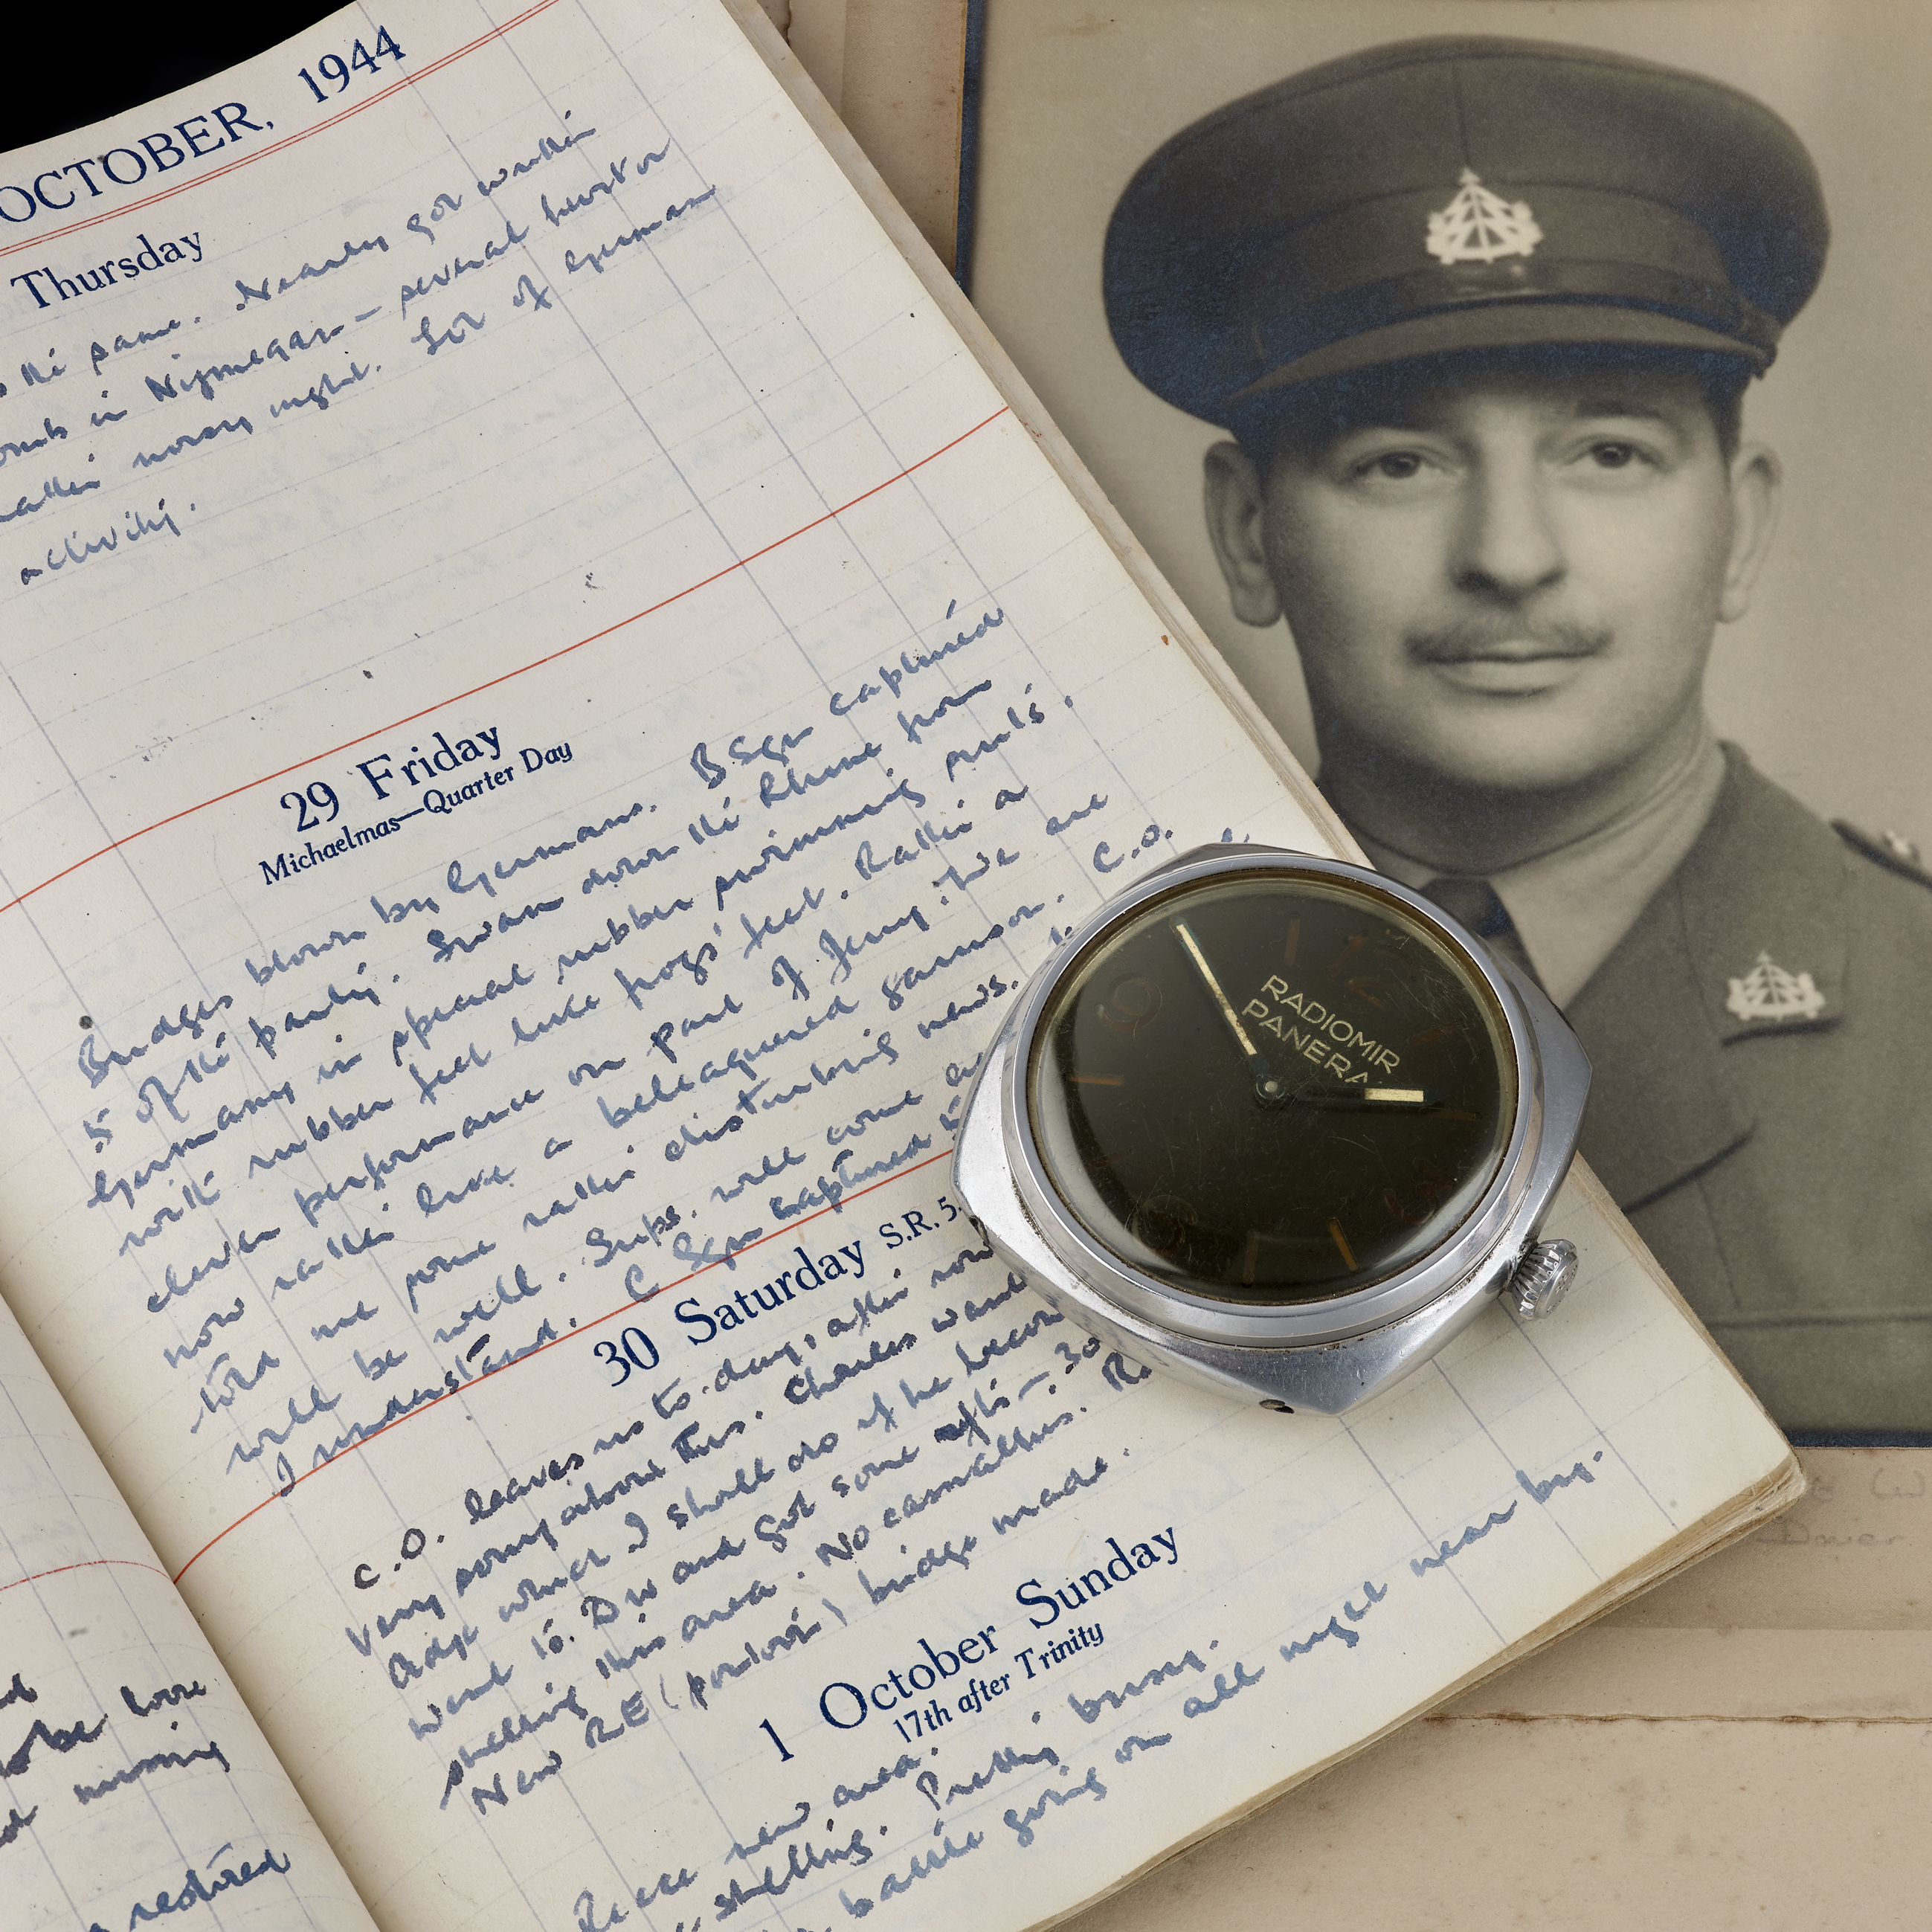 OCTOBER, 1944
Thursday
the same. Nearly got within
in Nijmegan - several hurt or
noisy night. Lot of German
activity.
29 Friday
Michaelmas—Quarter Day
Bridges blown by Germans. B Sqn captured
5 of the party. Swam down the Rhine from
Germany in special rubber swimming suits.
with rubber feet like frogs' feet. Rather a
clever performance on part of Jerry. We are
now rather like a beleaguered garrison. C.O.
told me some rather disturbing news.
will be well. Sups. will come
I understand. C Sqn captured 5
30 Saturday S.R. 5.
C.O. leaves us to-day, after
Very sorry about this. Charles
Adjt which I shall do if he
went to. Div and got some 30
shelling this area. No casualties. R.
New RE (pontoon) bridge made.
1 October Sunday
17th after Trinity
new area. Pretty busy.
shelling.
battle going on all night near by.
to be
missing
restored
RADIOMIR
PANERA